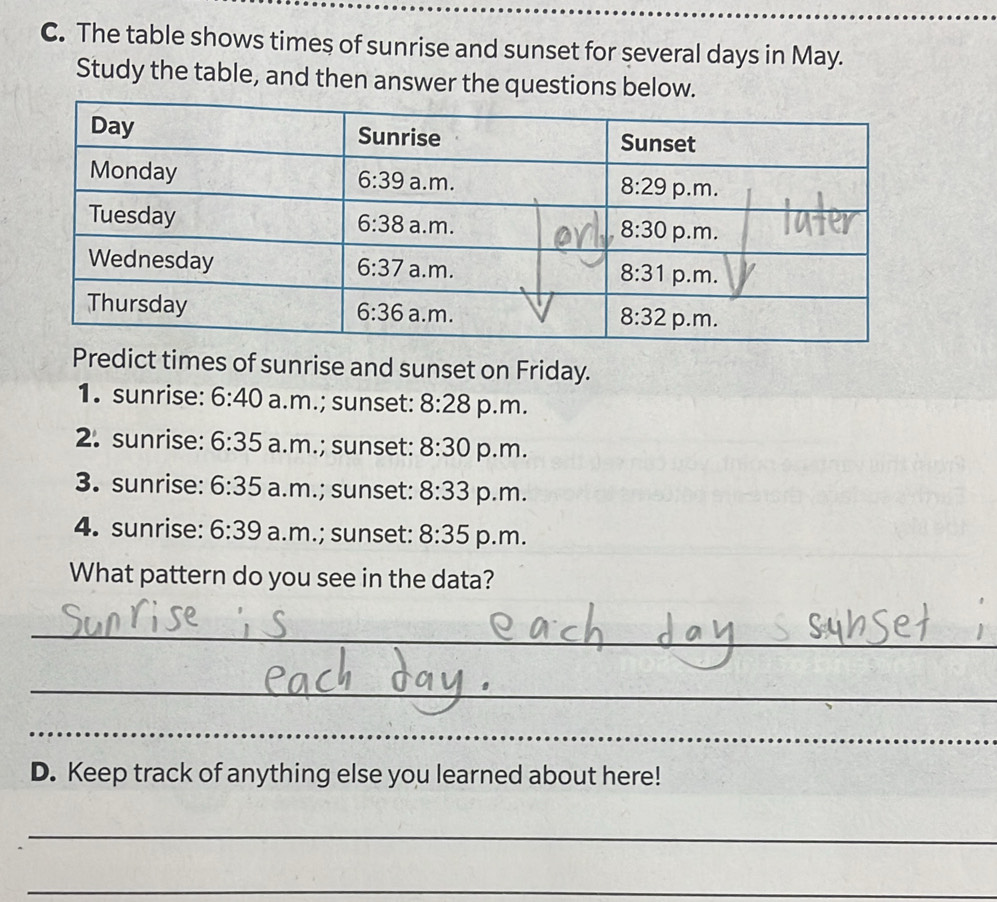 C. The table shows times of sunrise and sunset for several days in May.
Study the table, and then answer the questions below.
Day Sunrise Sunset
Monday 6:39 a.m. 8:29 p.m.
Tuesday 6:38 a.m. 8:30 p.m. later
Wednesday 6:37 a.m. 8:31 p.m.
Thursday 6:36 a.m. 8:32 p.m.
Predict times of sunrise and sunset on Friday.
1. sunrise: 6:40 a.m.; sunset: 8:28 p.m.
2. sunrise: 6:35 a.m.; sunset: 8:30 p.m.
3. sunrise: 6:35 a.m.; sunset: 8:33 p.m.
4. sunrise: 6:39 a.m.; sunset: 8:35 p.m.
What pattern do you see in the data?
Sunrise is each day sunset i
each day.
D. Keep track of anything else you learned about here!